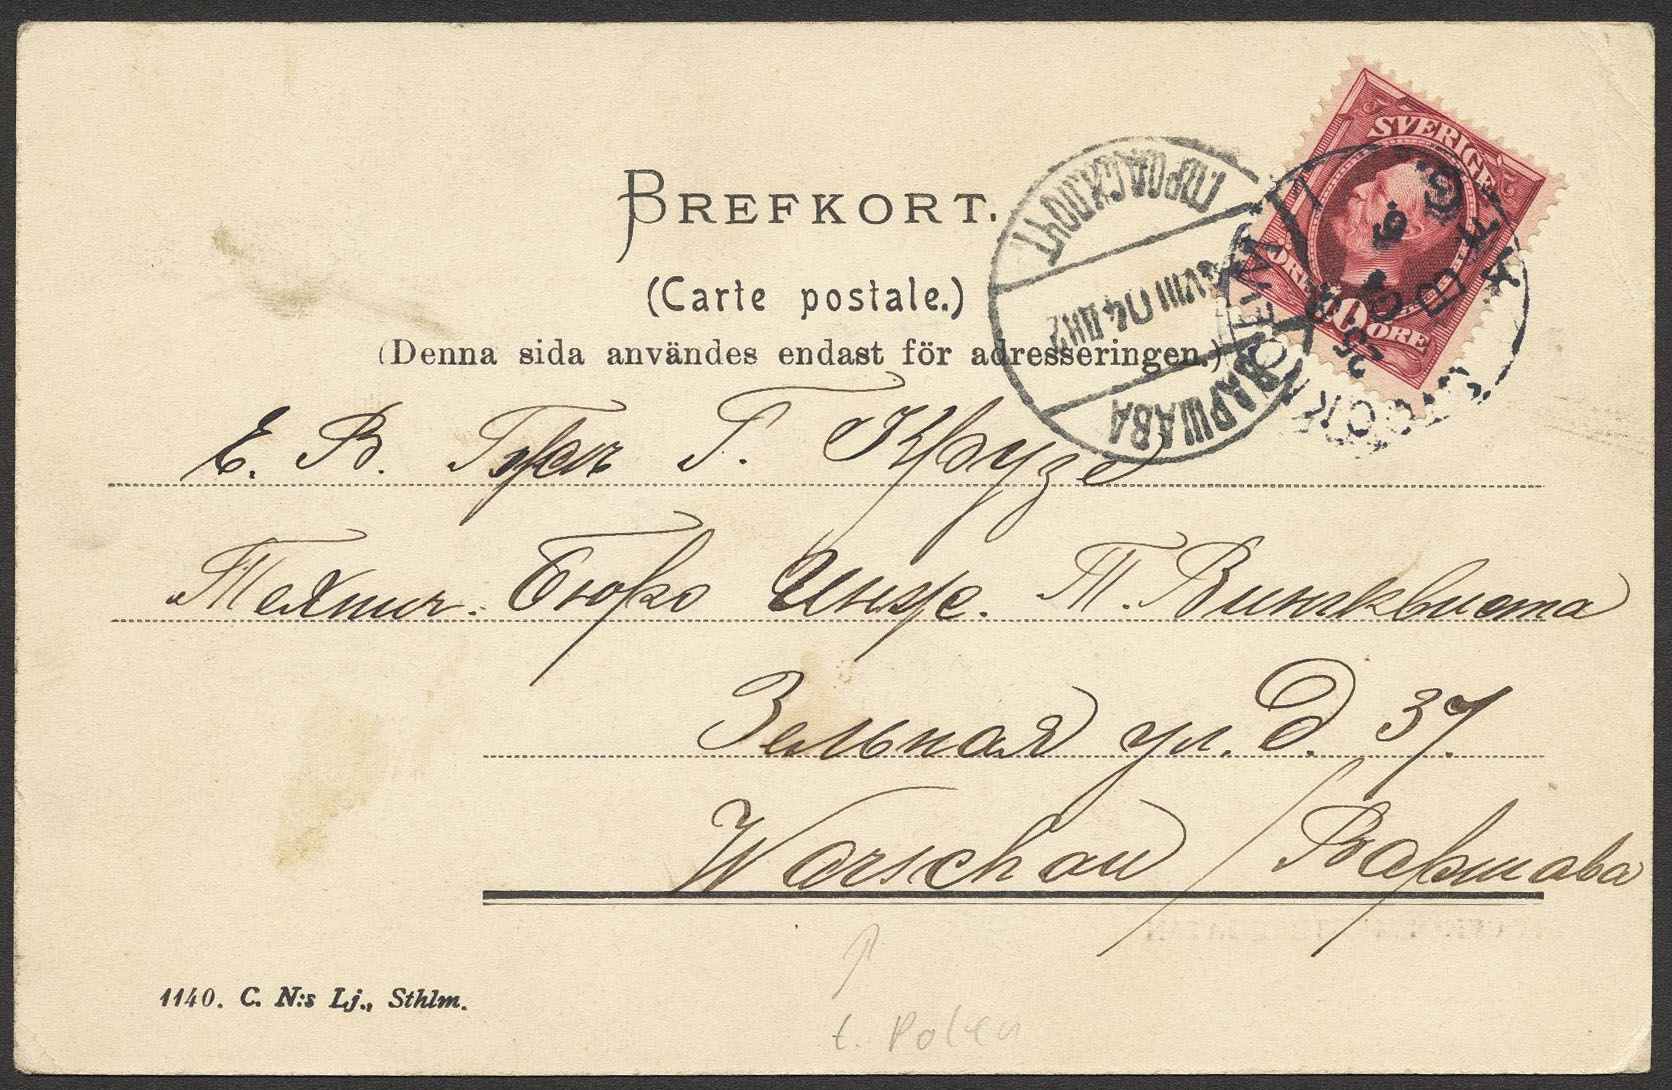 BREFKORT.
(Carte postale.)
(Denna sida användes endast för adresseringen.)
SVERIGE
10 ÖRE
ÖRE
STOCKHOLM
ГОРОДСК. ПОЧТ
VIII 04
ВАРШАВА
Е. В. Г. Крузе
Технич. Бюро Инж. Т. Вингквиста
Зельная ул. д. 37.
Warschau / Варшава
1140. C. N:s Lj., Sthlm.
t. Polen